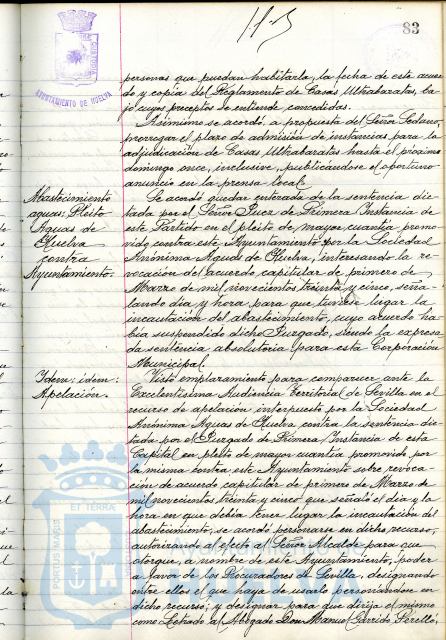 83
AYUNTAMIENTO DE HUELVA
personas que puedan habitarla, la fecha de este acuer
do y copia del Reglamento de Casas Ultrabaratas, ba
jo cuyos preceptos se entiende concedidas.
Asimismo se acordó, a propuesta del Señor Sedano,
prorrogar el plazo de admisión de instancias para la
adjudicación de Casas Ultrabaratas hasta el próximo
domingo once, inclusive, publicándose el oportuno
anuncio en la prensa local.
Abastecimiento
aguas: Pleito
Aguas de
Huelva
contra
Ayuntamiento.
Se acordó quedar enterada de la sentencia dic
tada por el Señor Juez de Primera Instancia de
este Partido en el pleito de mayor cuantía promo
vido contra este Ayuntamiento por la Sociedad
Anónima Aguas de Huelva, interesando la re
vocación del acuerdo capitular de primero de
Marzo de mil novecientos treinta y cinco, seña
lando día y hora, para que tuviese lugar la
incautación del abastecimiento, cuyo acuerdo ha
bía suspendido dicho Juzgado, siendo la expresa
da sentencia absolutoria para esta Corporación
Municipal.
Idem: idem:
Apelación.
Visto emplazamiento para comparecer ante la
Excelentísima Audiencia Territorial de Sevilla en el
recurso de apelación interpuesto por la Sociedad
Anónima Aguas de Huelva contra la sentencia dic
tada por el Juzgado de Primera Instancia de esta
Capital en pleito de mayor cuantía promovido por
la misma contra este Ayuntamiento sobre revoca
ción de acuerdo capitular de primero de Marzo de
mil novecientos treinta y cinco que señaló el día y la
hora en que debía tener lugar la incautación del
abastecimiento, se acordó personarse en dicho recurso,
autorizando al efecto al Señor Alcalde para que
otorgue, a nombre de este Ayuntamiento, poder
a favor de los Procuradores de Sevilla, designando
entre ellos el que haya de usarlo personándose en
dicho recurso; y designar para que dirija el mismo
como Letrado al Abogado Don Manuel Garrido Perelló,
PORTUS MARIS
ET TERRÆ